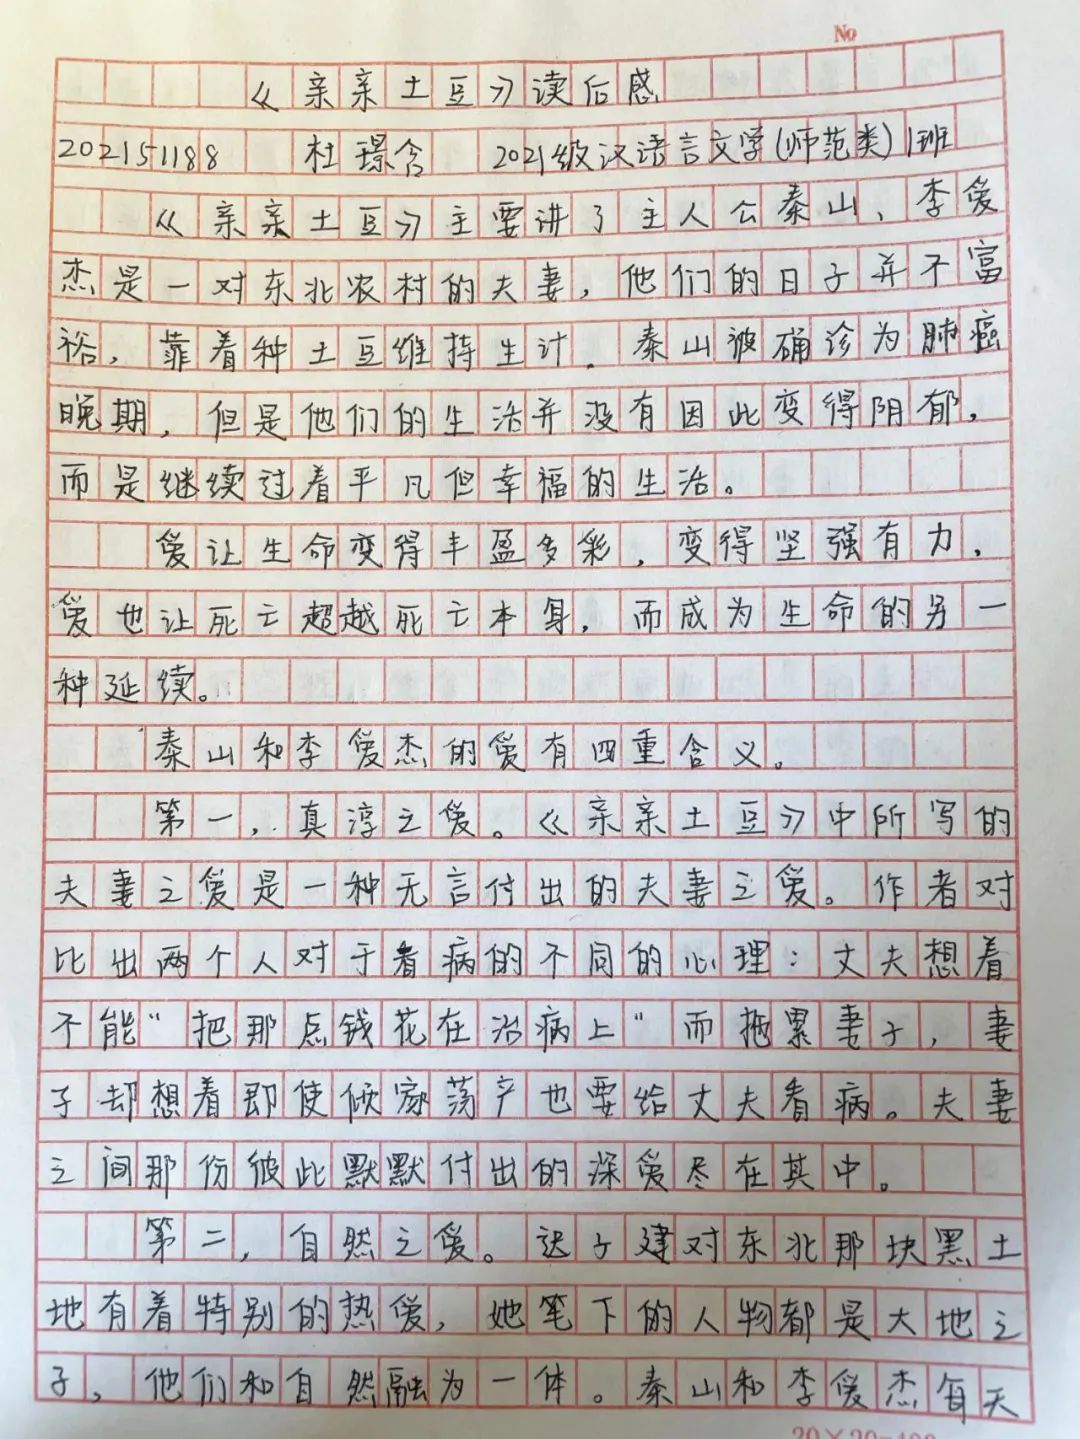 No
《亲亲土豆》读后感
202151188 杜璟含 2021级汉语言文学(师范类)1班
《亲亲土豆》主要讲了主人公秦山、李爱
杰是一对东北农村的夫妻,他们的日子并不富
裕,靠着种土豆维持生计.秦山被确诊为肺癌
晚期,但是他们的生活并没有因此变得阴郁,
而是继续过着平凡但幸福的生活。
爱让生命变得丰盈多彩,变得坚强有力,
爱也让死亡超越死亡本身,而成为生命的另一
种延续。
秦山和李爱杰的爱有四重含义。
第一,真淳之爱。《亲亲土豆》中所写的
夫妻之爱是一种无言付出的夫妻之爱。作者对
比出两个人对于看病的不同的心理:丈夫想着
不能“把那点钱花在治病上”而拖累妻子,妻
子却想着即使倾家荡产也要给丈夫看病。夫妻
之间那份彼此默默付出的深爱尽在其中。
第二,自然之爱。迟子建对东北那块黑土
地有着特别的热爱,她笔下的人物都是大地之
子,他们和自然融为一体。秦山和李爱杰每天